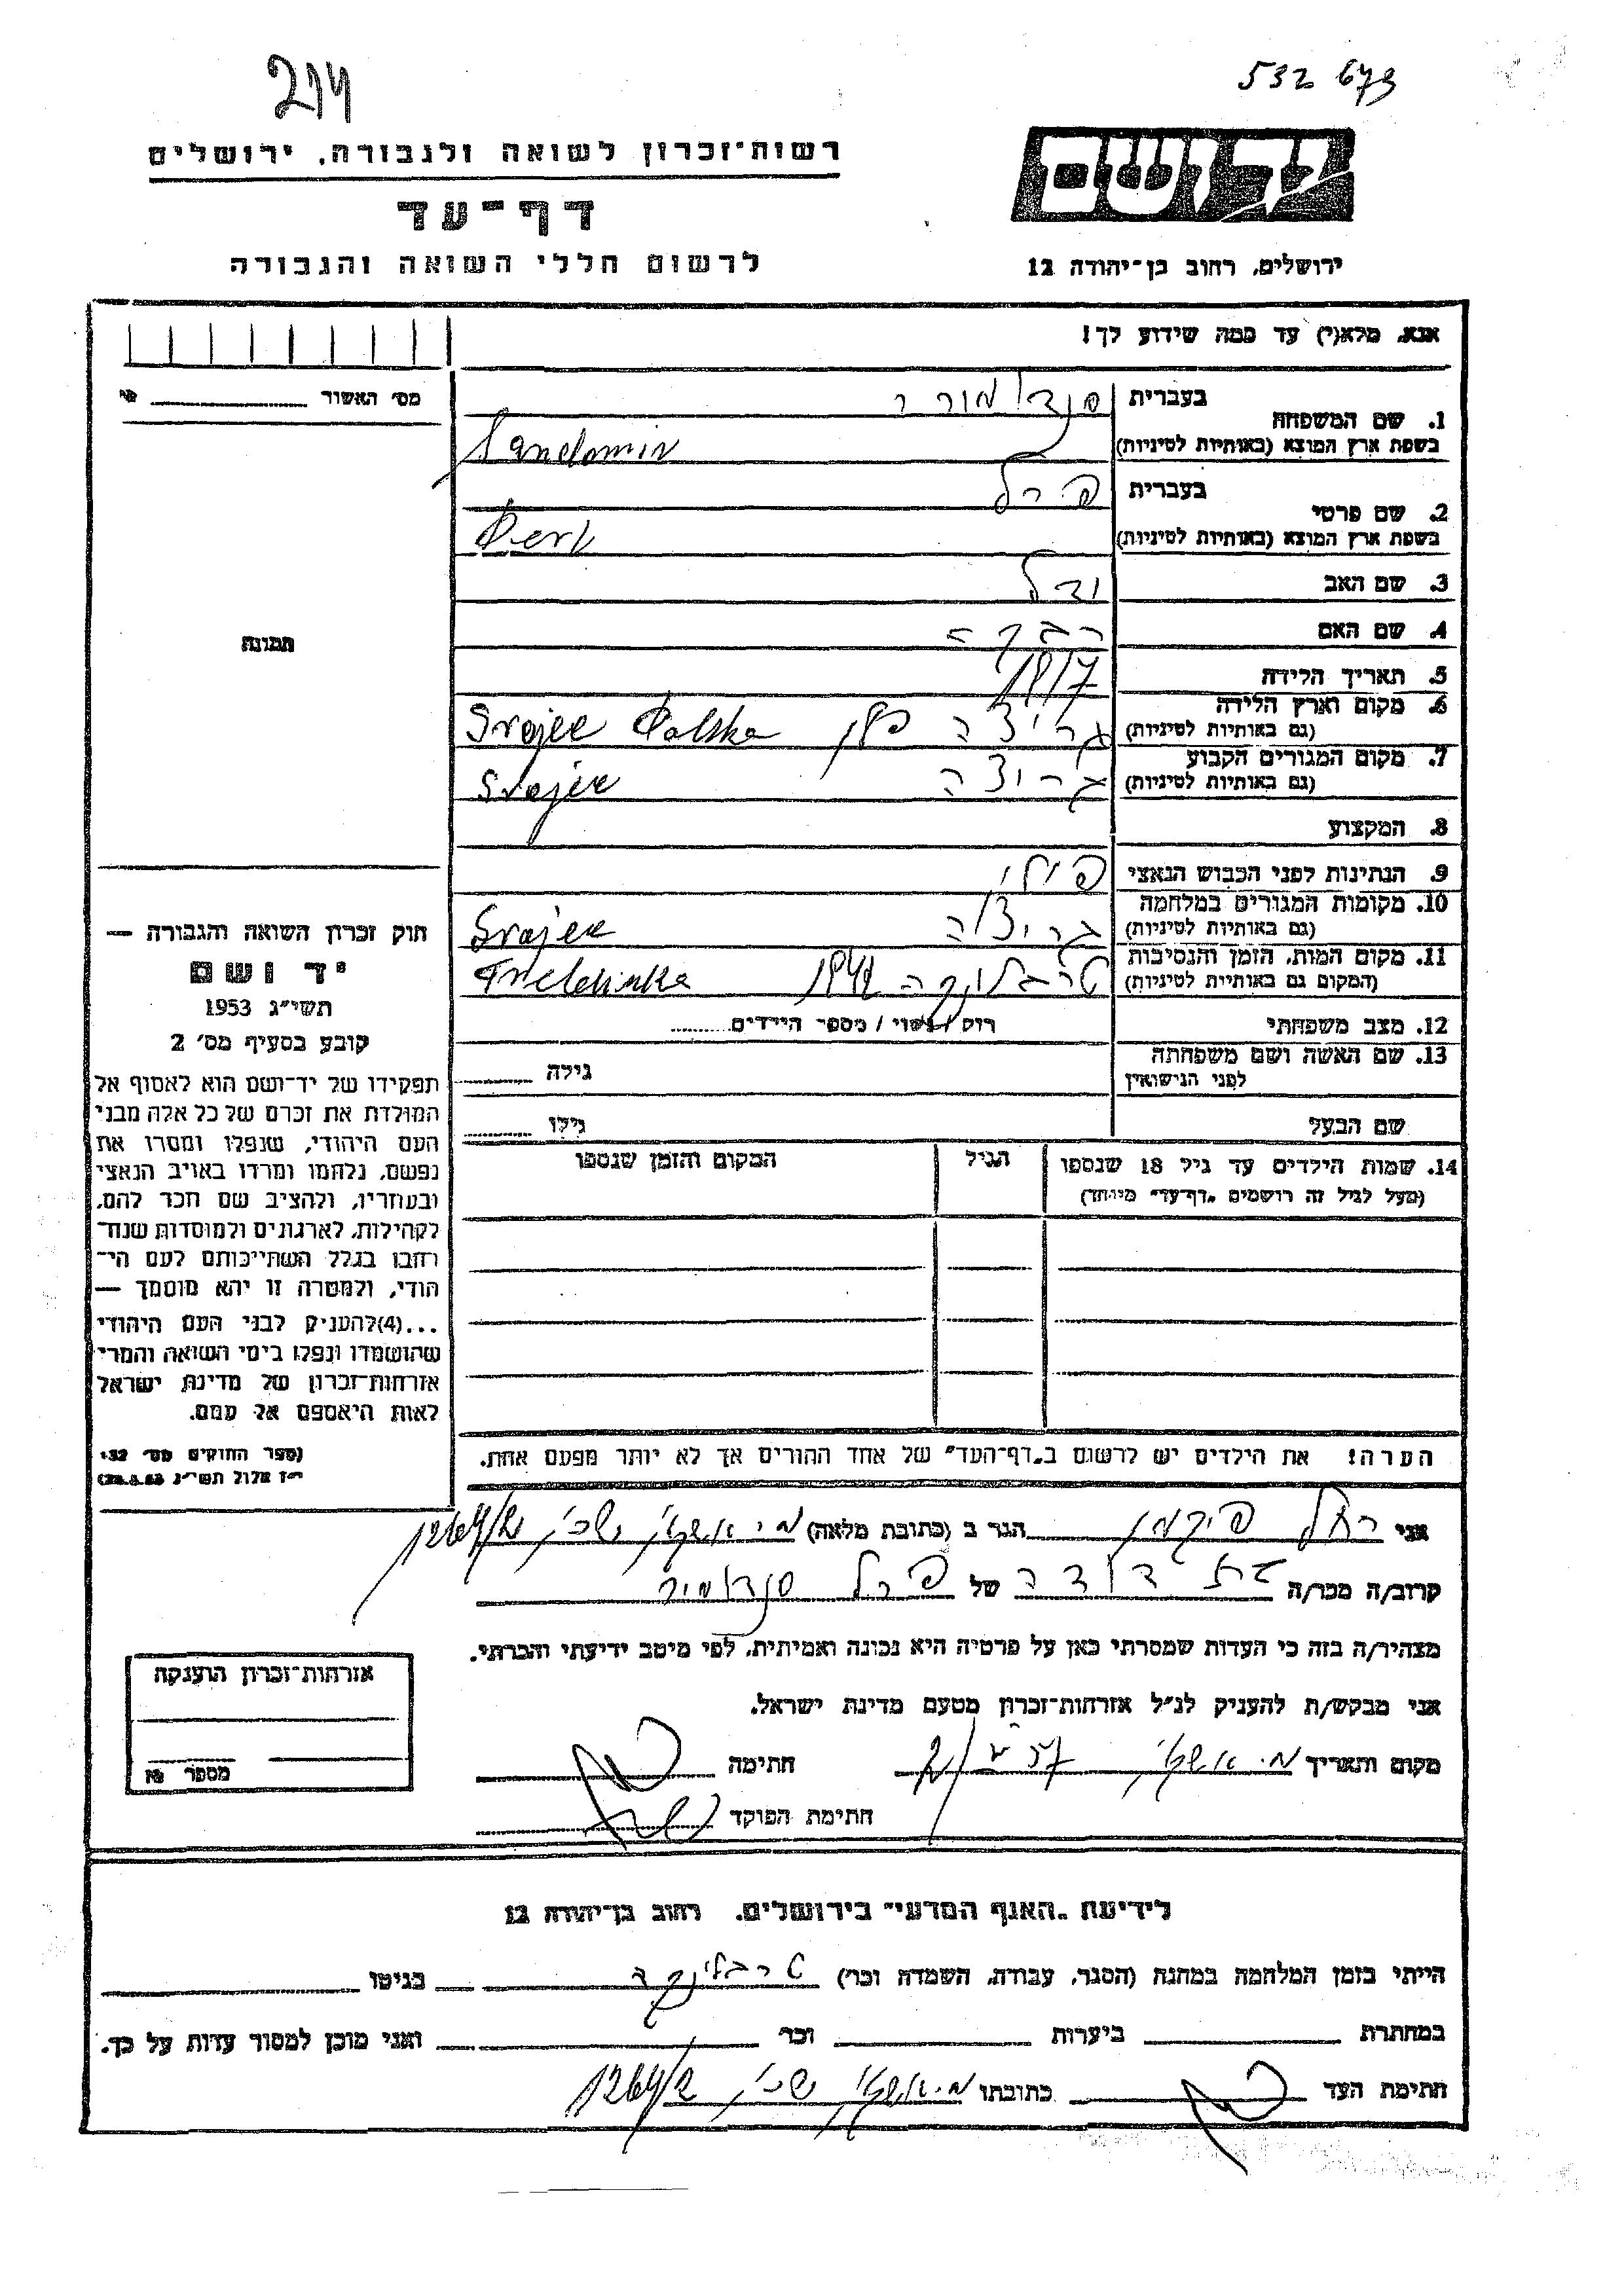 214
532 673
רשות־זכרון לשואה ולגבורה, ירושלים
יד ושם
דף־עד
לרשום חללי השואה והגבורה
ירושלים, רחוב בן־יהודה 12
אנא, מלא(י) עד כמה שידוע לך!
מס׳ האשור
1. שם המשפחה
בעברית
(בשפת ארץ המוצא (באותיות לטיניות
Sandomir
2. שם פרטי
בעברית פרל
(בשפת ארץ המוצא (באותיות לטיניות
Perl
3. שם האב
4. שם האם רבקה
5. תאריך הלידה 1917
6. מקום וארץ הלידה
(גם באותיות לטיניות) פולין Polska
7. מקום המגורים הקבוע
(גם באותיות לטיניות)
8. המקצוע
9. הנתינות לפני הכבוש הנאצי
10. מקומות המגורים במלחמה
(גם באותיות לטיניות)
11. מקום המות, הזמן והנסיבות
(המקום גם באותיות לטיניות) טרבלינקה
12. מצב משפחתי רוק / נשוי / מספר הילדים
13. שם האשה ושם משפחתה
לפני הנישואין גילה
שם הבעל גילו
14. שמות הילדים עד גיל 18 שנספו הגיל המקום והזמן שנספו
(מעל לגיל זה רושמים „דף־עד״ מיוחד)
הערה! את הילדים יש לרשום ב„דף־העד״ של אחד ההורים אך לא יותר מפעם אחת.
תמונה
חוק זכרון השואה והגבורה —
יד ושם
תשי״ג 1953
קובע בסעיף מס׳ 2
תפקידו של יד־ושם הוא לאסוף אל
המולדת את זכרם של כל אלה מבני
העם היהודי, שנפלו ומסרו את
נפשם, נלחמו ומרדו באויב הנאצי
ובעוזריו, ולהציב שם וזכר להם,
לקהילות, לארגונים ולמוסדות שנח־
רבו בגלל השתייכותם לעם הי־
הודי, ולמטרה זו יהא מוסמך —
...(4)להעניק לבני העם היהודי
שהושמדו ונפלו בימי השואה והמרי
אזרחות־זכרון של מדינת ישראל
לאות היאספם אל עמם.
(ספר החוקים מס׳ 132
י״ז אלול תשי״ג 28.8.53)
אני רחל פיקמן הגר ב (כתובת מלאה) 1264/2
קרוב/ה מכר/ה בת דודה של פרל סנדומיר
מצהיר/ה בזה כי העדות שמסרתי כאן על פרטיה היא נכונה ואמיתית, לפי מיטב ידיעתי והכרתי.
אני מבקש/ת להעניק לנ״ל אזרחות־זכרון מטעם מדינת ישראל.
מקום ותאריך חתימה
חתימת הפוקד
אזרחות־זכרון הוענקה
מספר №
לידיעת „האגף המדעי״ בירושלים, רחוב בן־יהודה 12
הייתי בזמן המלחמה במחנה (הסגר, עבודה, השמדה וכו׳) טרבלינקה בגיטו
במחתרת ביערות וכו׳ ואני מוכן למסור עדות על כך.
חתימת העד כתובתו 1264/2